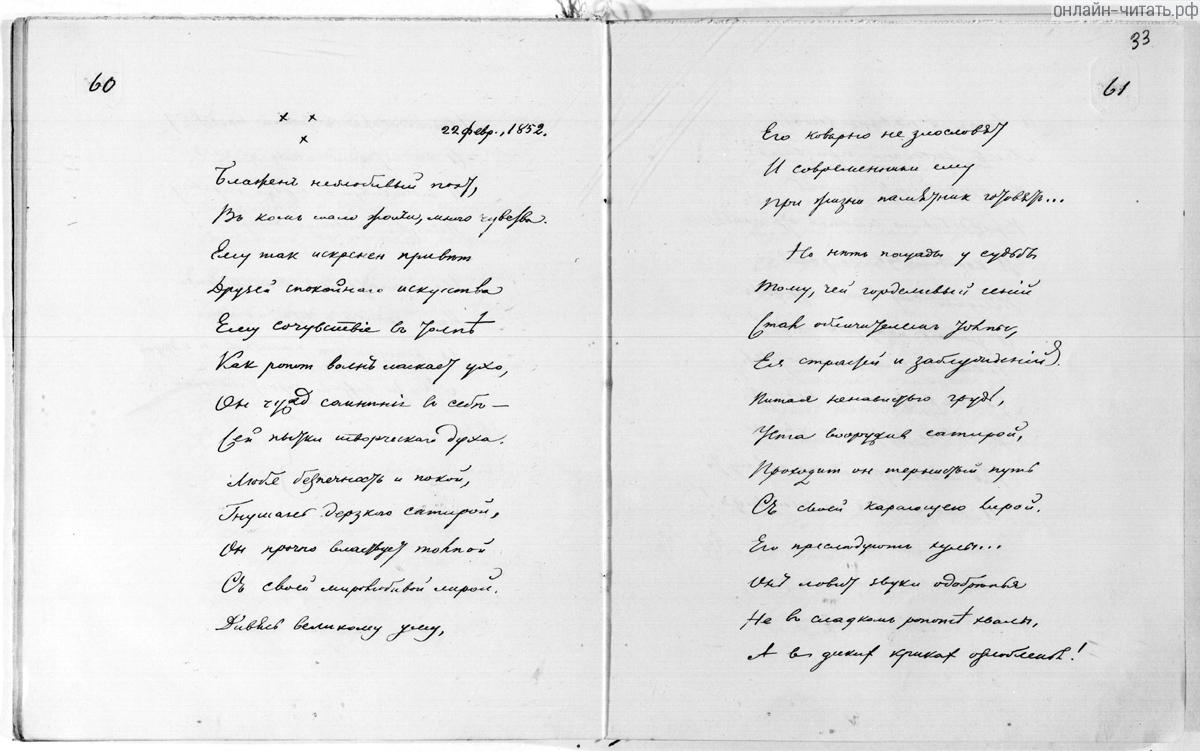 онлайн-читать.рф
60
× × ×
22 февр., 1852.
Блаженъ незлобивый поэт,
Въ комъ мало жолчи, много чувства.
Ему так искренен привѣт
Друзей спокойнаго искусства
Ему сочувствіе в толпѣ
Как ропот волнъ ласкает ухо,
Он чужд сомнѣнія в себѣ —
Сей пытки творческаго духа.
Любя безпечность и покой,
Гнушаясь дерзкою сатирой,
Он прочно властвует толпой
Съ своей миролюбивой лирой.
Дивясь великому уму,
33
61
Его коварно не злословят
И современники ему
При жизни памятник готовят...
Но нѣтъ пощады у судьбы
Тому, чей горделивый геній
Стал обличителем толпы,
Ея страстей и заблуждений.
Питая ненавистью грудь,
Уста вооружив сатирой,
Проходит он тернистый путь
Съ своей карающею лирой.
Его преслѣдуютъ хулы...
Онъ ловит звуки одобренья
Не в сладкомъ ропотѣ хвалы,
А в диких криках озлобленья!